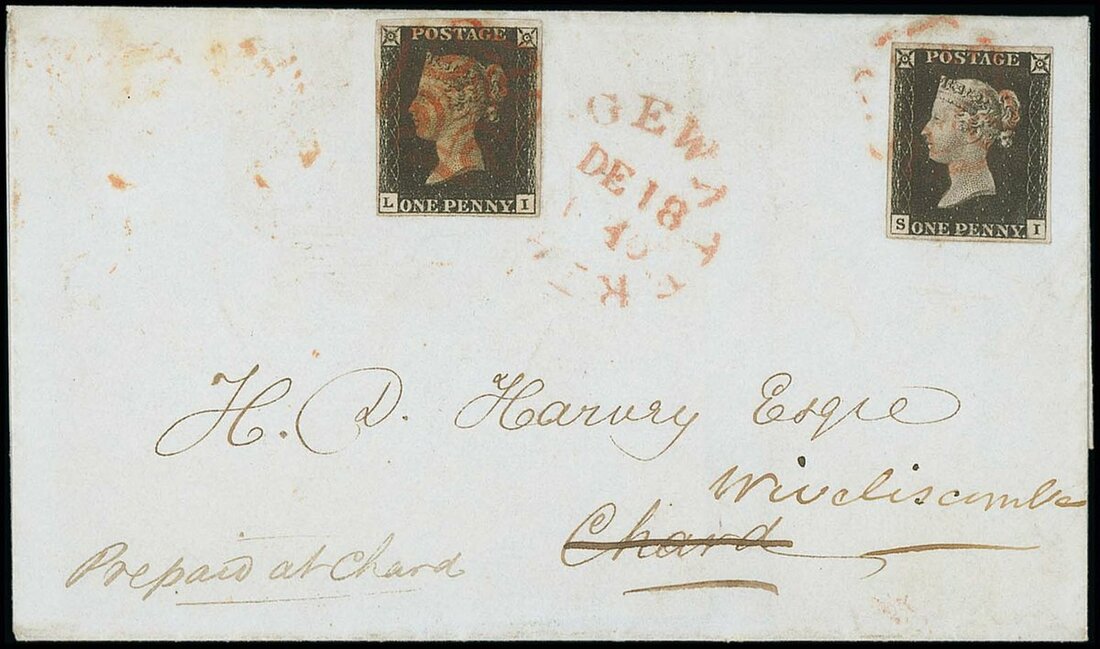 POSTAGE
L ONE PENNY I
POSTAGE
S ONE PENNY I
GEWA
DE 18
H. D. Harvey Esqre
Wiveliscombe
Chard
Prepaid at Chard